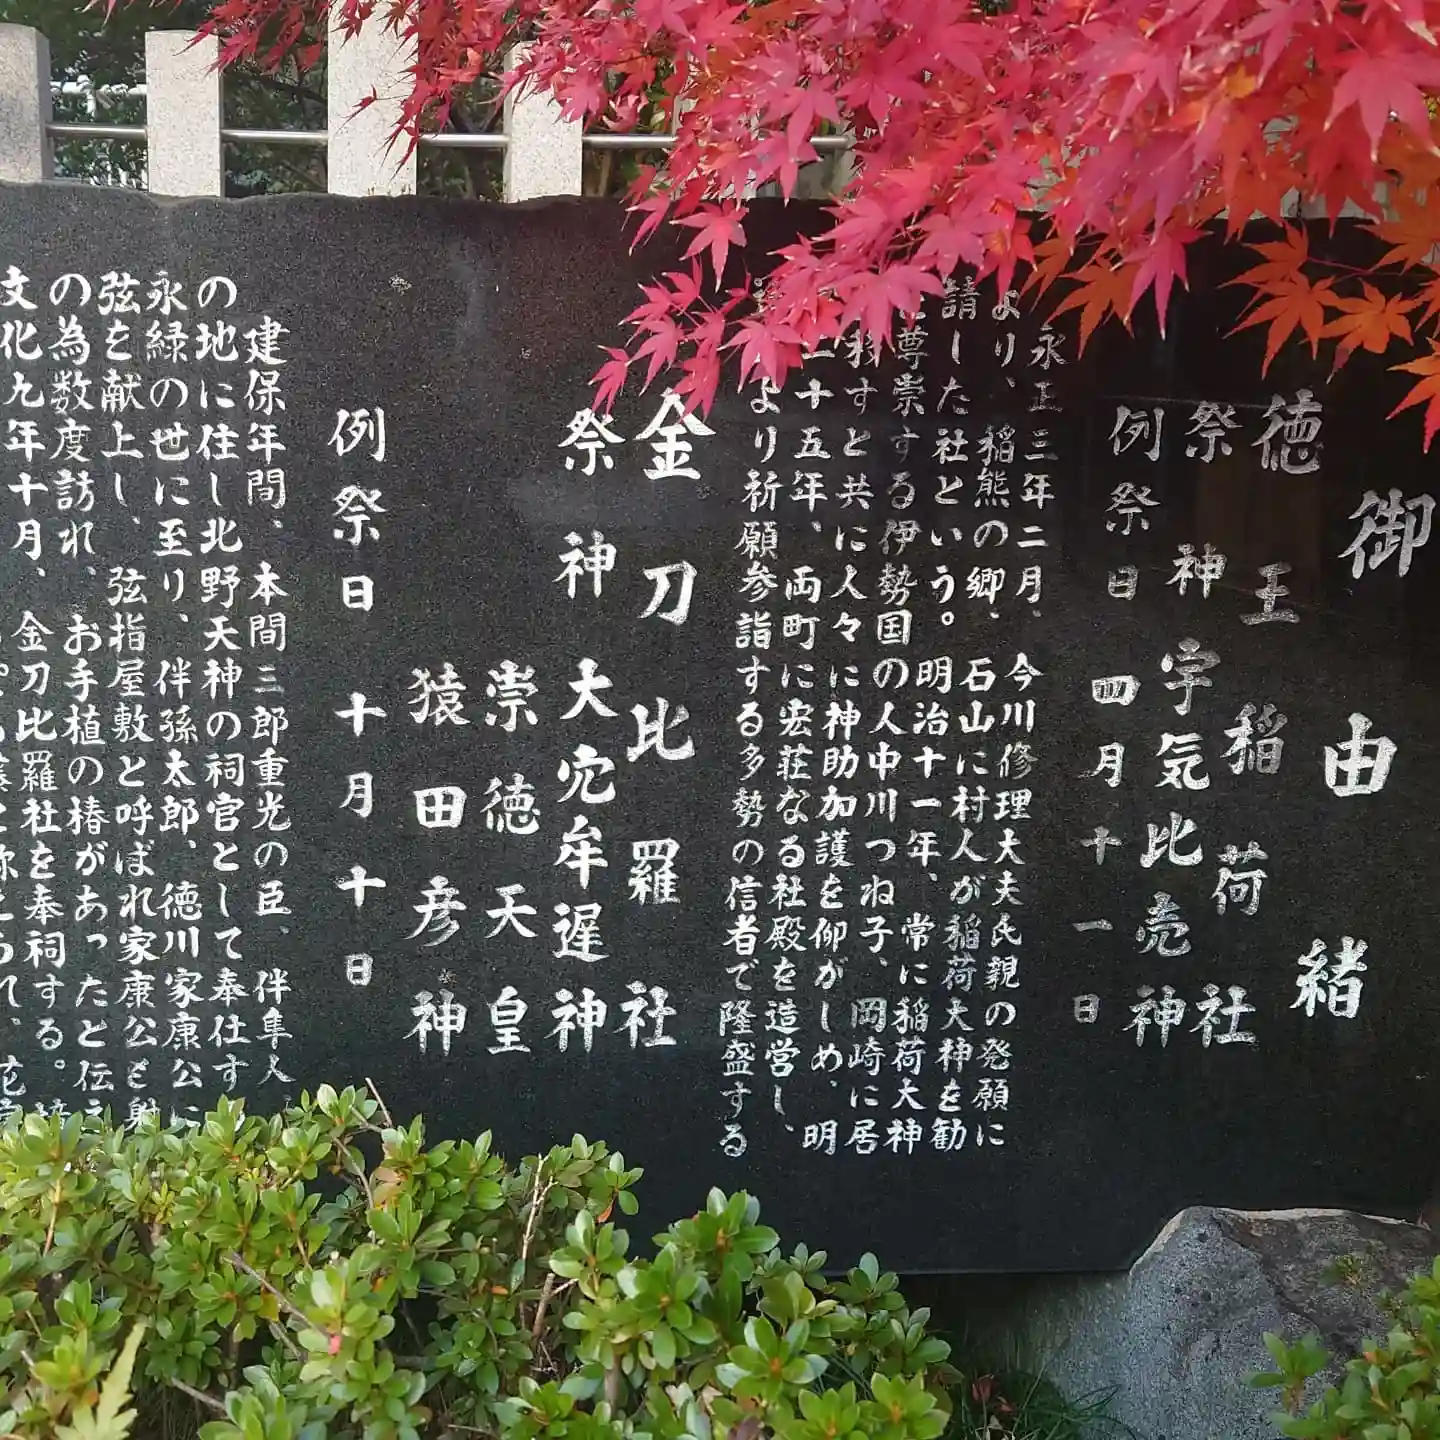 御由緒
徳王稲荷社
祭神 宇気比売神
例祭日 四月十一日
永正三年二月、今川修理大夫氏親の発願に
より、稲熊の郷、石山に村人が稲荷大神を勧
請した社という。明治十一年、常に稲荷大神
尊崇する伊勢国の人中川つね子、岡崎に居
すと共に人々に神助加護を仰がしめ、明
二十五年、両町に宏荘なる社殿を造営し、
より祈願参詣する多勢の信者で隆盛する
金刀比羅社
祭神 大宄牟遅神
崇徳天皇
猿田彦神
例祭日 十月十日
建保年間、本間三郎重光の臣、伴隼人、
の地に住し北野天神の祠官として奉仕す
永緑の世に至り、伴孫太郎、徳川家康公に
弦を献上し、弦指屋敷と呼ばれ家康公と射
の為数度訪れ、お手植の椿があったと伝え
文化九年十月、金刀比羅社を奉祠する。